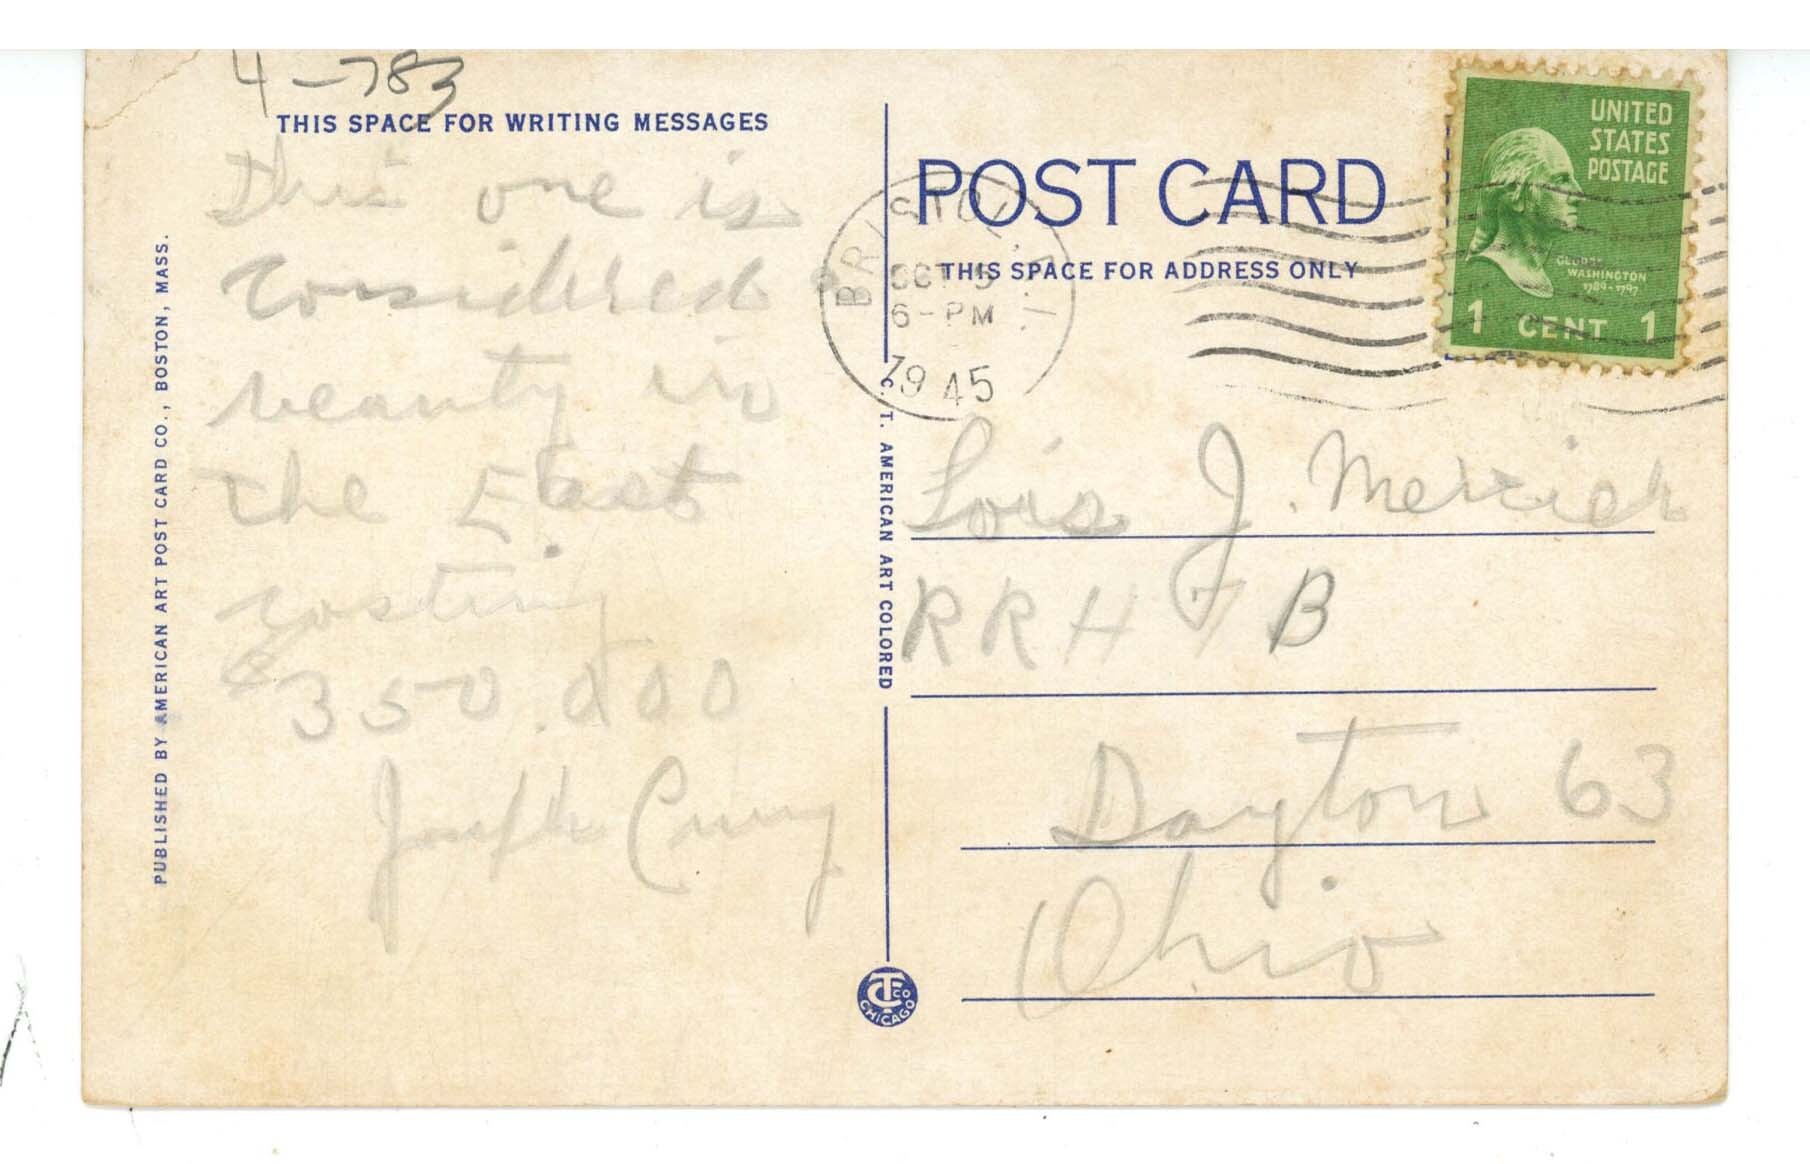 4-783
THIS SPACE FOR WRITING MESSAGES
This one is
considered a
beauty in
the East
costing
350.000
Joseph
PUBLISHED BY AMERICAN ART POST CARD CO., BOSTON, MASS.
POST CARD
THIS SPACE FOR ADDRESS ONLY
BRISTOL, R.I.
OCT 5
6-PM
1945
UNITED
STATES
POSTAGE
GEORGE
WASHINGTON
1789-1797
1 CENT 1
C. T. AMERICAN ART COLORED
Lois J. Merrick
RR# 7 B
Dayton 63
Ohio
CT CO
CHICAGO